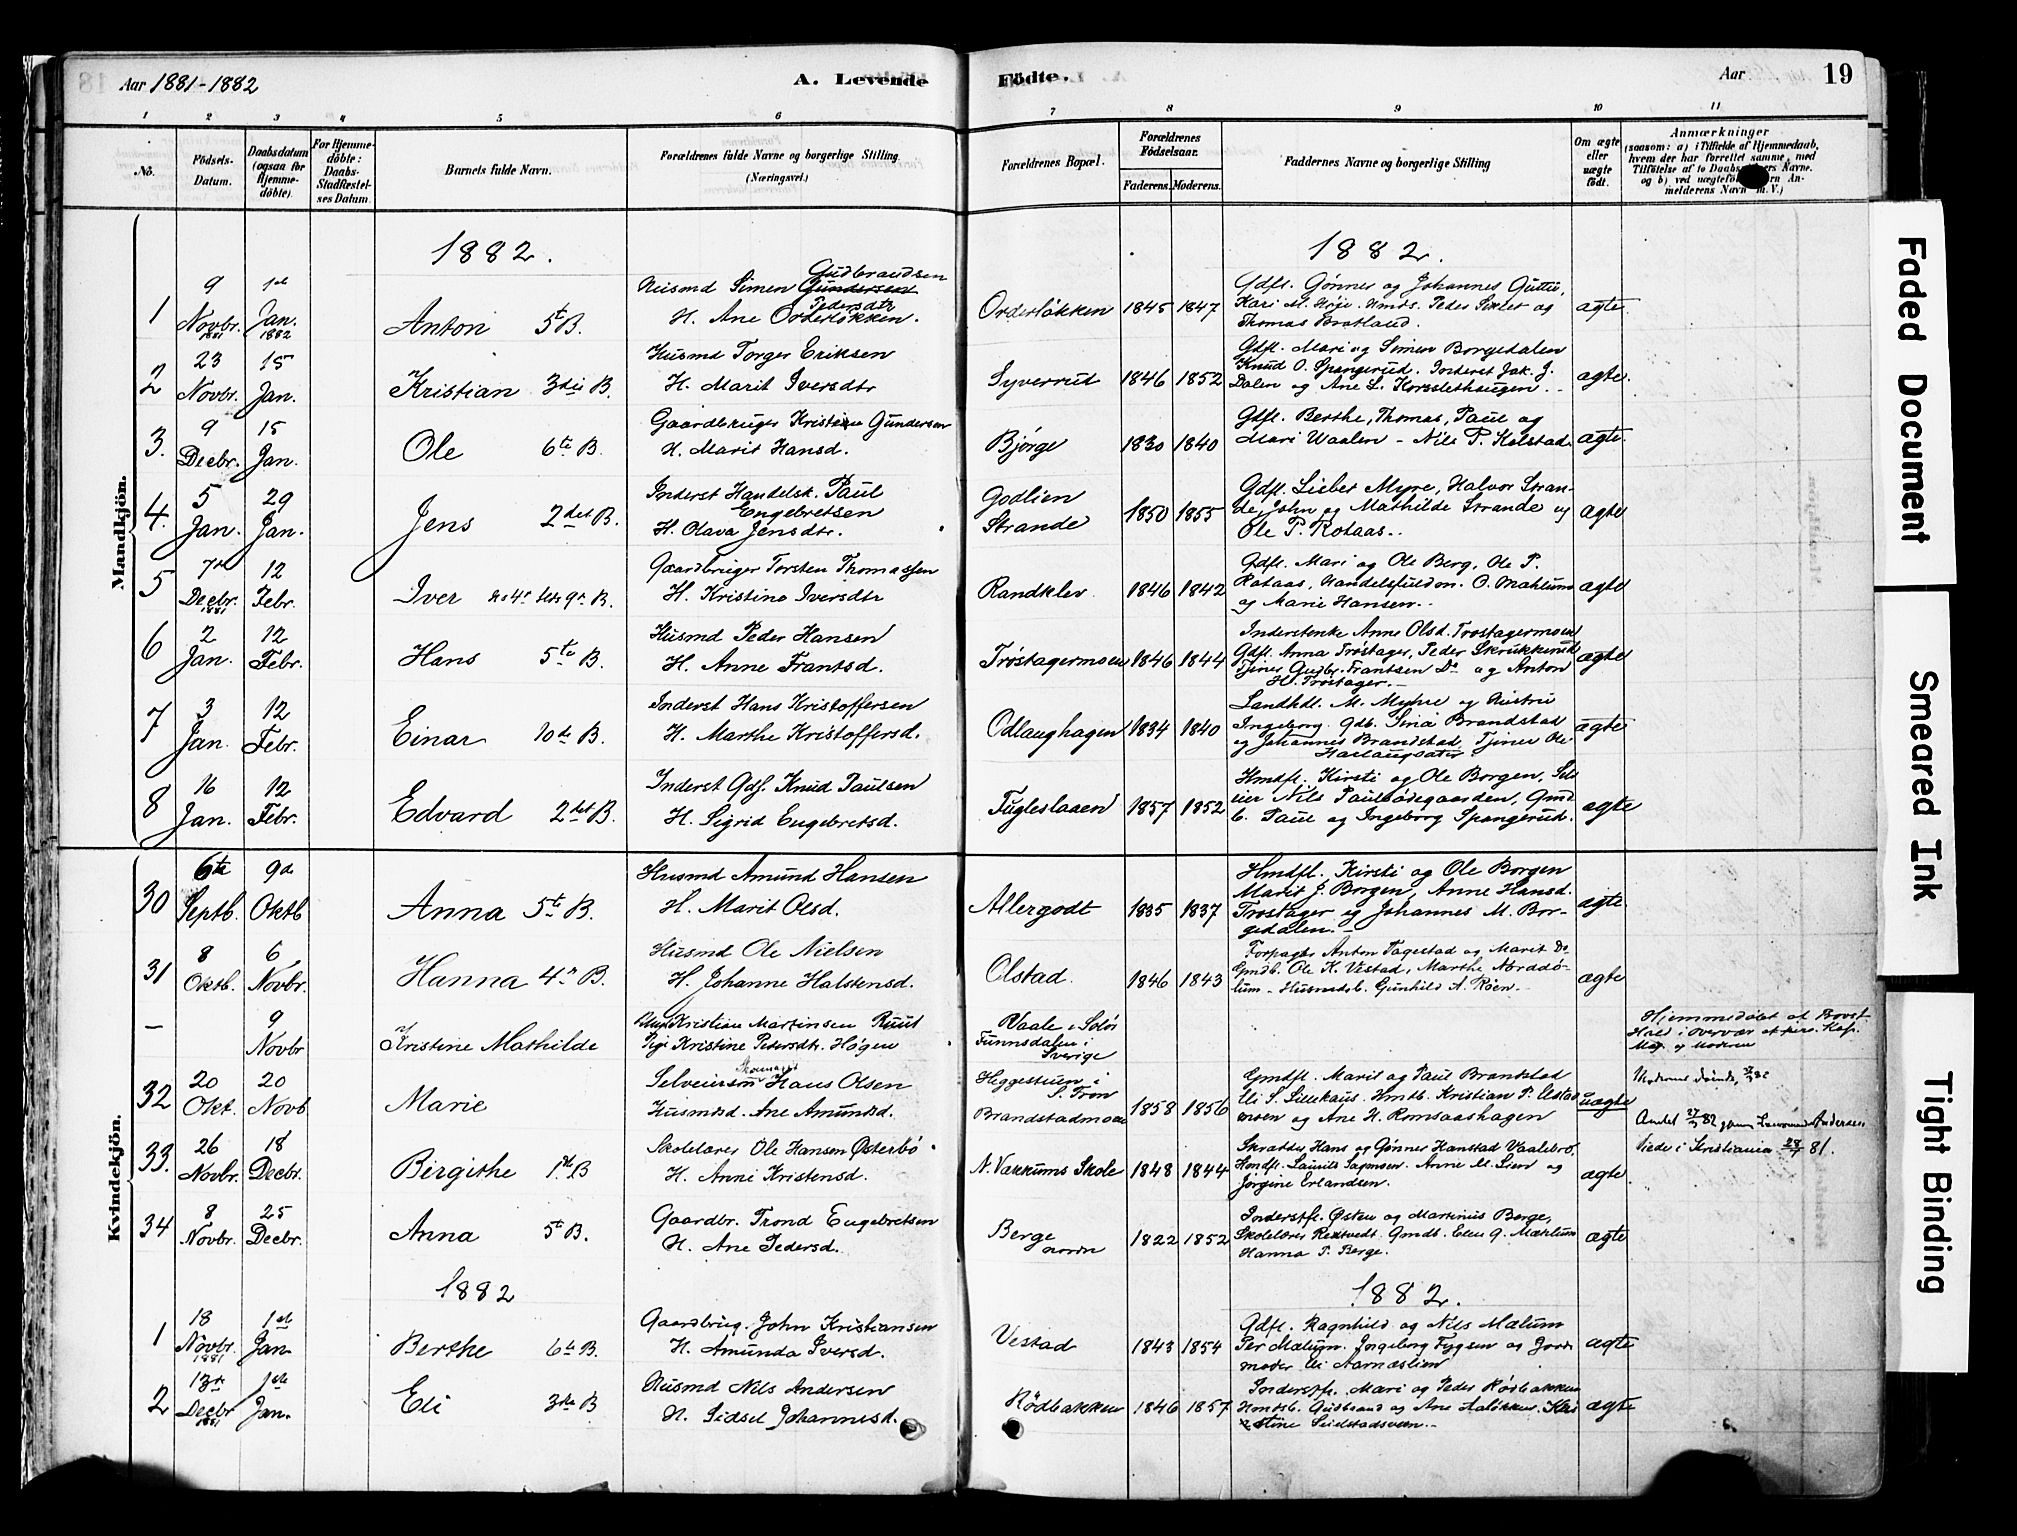 Aar 1881-1882
A. Levende
Födte.
Aar
19
1 2 3 4 5 6 7 8 9 10 11
No.
Födsels-Datum.
Daabsdatum (ogsaa for Hjemme-döbte).
For Hjemme-döbte: Daabs-Stadfæstel-ses Datum.
Barnets fulde Navn.
Forældrenes fulde Navne og borgerlige Stilling. (Næringsvei.)
Forældrenes Bopæl.
Forældrenes Födselsaar.
Faderens. Moderens.
Faddernes Navne og borgerlige Stilling
Om ægte eller uægte födt.
Anmærkninger
(saasom: a) i Tilfælde af Hjemmedaab,
hvem der har forrettet samme, med
Mandkjön.
1882. 1882.
1 9 Novbr. 1881 1ste Jan. 1882
Anton 5te B.
Husmd Simen Gudbrandsen
H. Ane Pedersdtr Orderløkken.
Orderløkken 1845 1847
Gdfl. Gønner og Johannes Guttu,
Thomas Bratland.
ægte
2 23 Novbr. 15 Jan.
Kristian 3die B.
Husmd Torger Eriksen
H. Marit Iversdtr
Syverrud 1846 1852
Gdfl. Mari og Simen Borgedalen
Knud O. Spangerud. Inderst Jak. J.
Dalen og Ane L. Korsslethaugen.
ægte.
3. 9 Decbr. 15 Jan.
Ole 6te B.
Gaardbruger Kristian Gundersen
H. Marit Hansd.
Bjørge 1830 1840
Gdfl. Berthe, Thomas, Paul og
Mari Waalen - Nils P. Kolstad.
ægte.
4. 5 Jan. 29 Jan.
Jens 2det B.
Inderst Handelsk. Paul
Engebretsen
H. Olava Jensdtr.
Godlien
Strande
1850 1855
Gdfl. Lisbet Myre, Halvor Stran-
de, John og Mathilde Strande og
Ole P. Rotaas..
ægte
5 7de Decbr. 1881 12 Febr.
Iver
Gaardbruger Torsten Thomassen
H. Kristine Iversdtr
Randklev. 1846 1842
Gdfl. Mari og Ole Berg, Ole P.
og Marie Hansen..
ægte
6 2 Jan. 12 Febr.
Hans 5te B.
Husmd Peder Hansen
H. Anne Frantsd.
Trøstagermoen 1846 1844
Inderstenke Anne Olsd. Trøstagermoen
Gdfl. Anna Trøstager, Peder Skrukkerud
Tjener Gudbr. Frantsen Do og Anton
H. Trøstager.
ægte
7 3 Jan. 12 Febr.
Einar 10de B.
Inderst Hans Kristoffersen
H. Marthe Kristoffersd.
Odlaughagen 1834 1840
Landhdl. M. Myhre og Hustru
Ingeborg. Gdb. Brandstad
og Johannes Brandstad. Tjener Ole
ægte
8 16 Jan. 12 Febr.
Edvard 2det B.
Inderst Gdf. Knud Paulsen
H. Sigrid Engebretsd.
Fugleslaaen 1857 1852
Hmdfl. Kirsti og Ole Borgen, Sel-
eier Nils Paulsødegaarden, Gmd
b. Paul og Ingeborg Spangerud.
ægte
Kvindekjön.
30 6te Septb. 9de Oktb
Anna 5te B.
Husmd Amund Hansen
H. Marit Olsd.
Allergodt 1835 1837
Hmdfl. Kirsti og Ole Borgen
Marit J. Borgen, Anne Hansd.
Trøstager og Johannes M. Bor-
gedalen.
ægte
31 8 Oktb. 6 Novbr.
Hanna 4de B.
Husmd Ole Nielsen
H. Johanne Halstensd.
Olstad. 1846 1843
Forpagter Anton Tagestad og Marit Do
Gmdb. Ole K. Vestad, Marthe Norddø-
lum - Husmdsb. Gunhild A. Røen.
ægte
— 9 Novbr
Kristine Mathilde
Kristian Martinsen Ruud
Pige Kristine Pedersdtr. Høgen
Vaale i Solør
Funnsdalen i
Sverige
32 20 Okt. 20 Novb
Marie
Selveiersøn Skomager Hans Olsen
Husmdsd. Ane Amundsd.
Heggestuen i
S. Fron
Brandstadmoen
1858 1856
Gmdfl. Marit og Paul Brandstad
moen og Ane H. Romsaashagen
uægte
33. 26 Novbr. 18 Decbr.
Birgithe 1ste B
Skolelærer Ole Hansen Østerbø
H. Anne Kristensd.
N. Vækkums Skole 1848 1844
Skrædder Hans og Gønner Hanstad Vaalebro,
Jørgine Erlandsen.
ægte
Viede i Kristiania 81.
34 8 Novbr. 25 Decbr.
Anna 5te B.
Gaardbr. Trond Engebretsen
H. Ane Pedersd.
Berge
nordre
1822 1852
Inderstfl. Østen og Martinus Berge,
Hanna P. Berge.
ægte
1882 1882.
1 18 Novbr. 1881 1ste Jan.
Berthe 6te B.
Gaardbrug. John Kristiansen
H. Amunda Iversd.
Vestad 1843 1854
Gdfl. Ragnhild og Nils Mælum
Per Mælum. Ingeborg Fyksen og Jord-
moder Eli Aarnæslien
ægte
2 13de Decbr 1881 1ste Jan.
Eli 3die B
Husmd Nils Andersen
H. Sidsel Johannesd.
Rödbakken 1846 1857
Inderstfl. Mari og Peder Rødbakken
ægte
Faded Document
Smeared Ink
Tight Binding